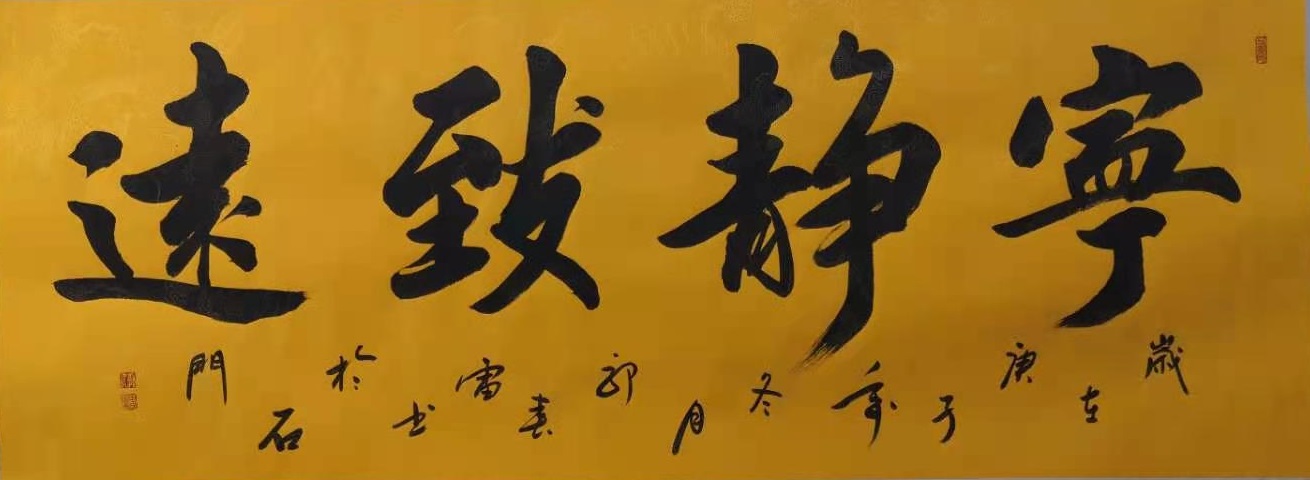 寧靜致遠
歲在庚子年冬月邵春雷书於石門